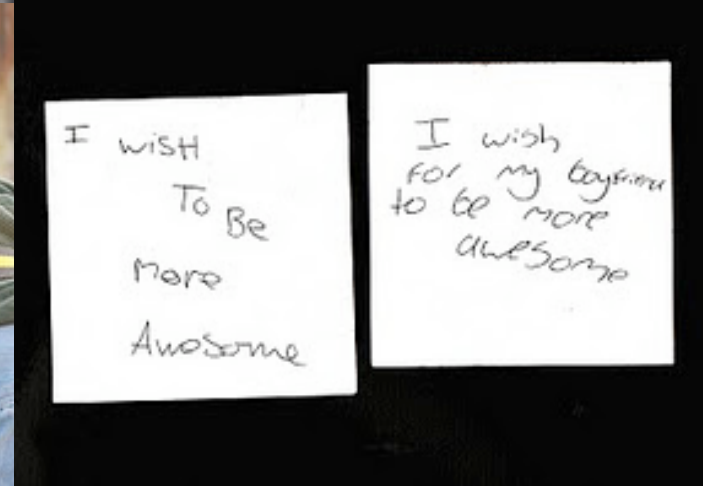 I WISH
TO BE
More
Awosome
I wish
For my boyfriend
to be more
awesome